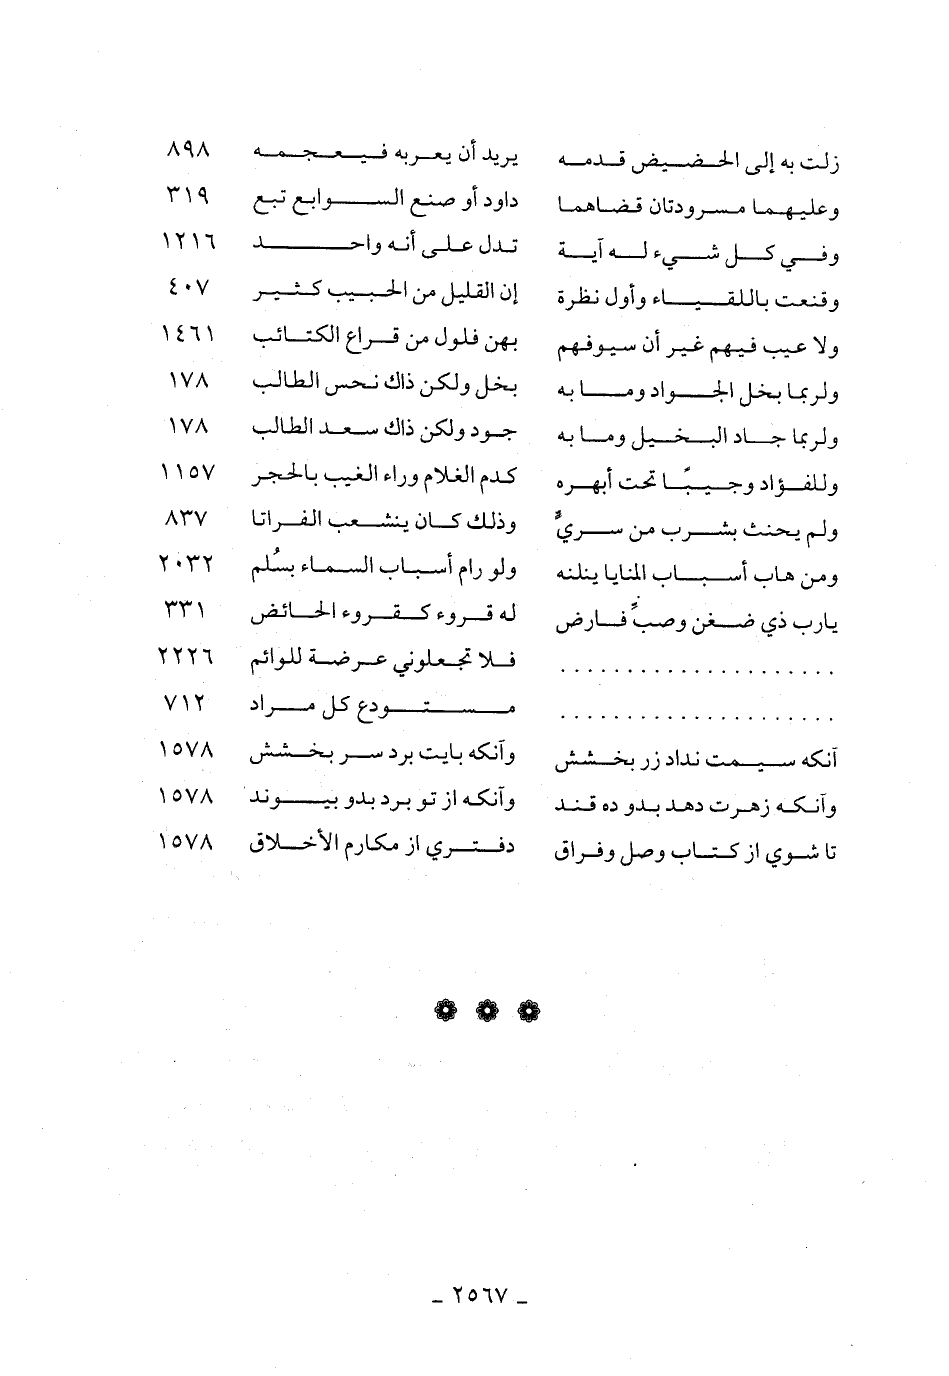 زلت به إلى الحضيض قدمه يريد أن يعربه فيعجمه ٨٩٨
وعليهما مسرودتان قضاهما داود أو صنع السوابغ تبع ٣١٩
وفي كل شيء له آية تدل على أنه واحد ١٢١٦
وقنعت باللقاء وأول نظرة إن القليل من الحبيب كثير ٤٠٧
ولا عيب فيهم غير أن سيوفهم بهن فلول من قراع الكتائب ١٤٦١
ولربما بخل الجواد وما به بخل ولكن ذاك نحس الطالب ١٧٨
ولربما جاد البخيل وما به جود ولكن ذاك سعد الطالب ١٧٨
وللفؤاد وجيبًا تحت أبهره كدم الغلام وراء الغيب بالحجر ١١٥٧
ولم يحنث بشرب من سريٍّ وذلك كان ينشعب الفراتا ٨٣٧
ومن هاب أسباب المنايا ينلنه ولو رام أسباب السماء بسُلم ٢٠٣٢
يارب ذي ضغن وضبٍّ فارض له قروء كقروء الحائض ٣٣١
. . . . . . . . . . . . . . . . . . . فلا تجعلوني عرضة للوائم ٢٢٢٦
. . . . . . . . . . . . . . . . . . . مستودع كل مراد ٧١٢
آنكه سيمت نداد زر بخشش وآنكه بايت برد سر بخشش ١٥٧٨
وآنكه زهرت دهد بدو ده قند وآنكه از تو برد بدو بيوند ١٥٧٨
تا شوي از كتاب وصل وفراق دفتري از مكارم الأخلاق ١٥٧٨
ـ ٢٥٦٧ ـ